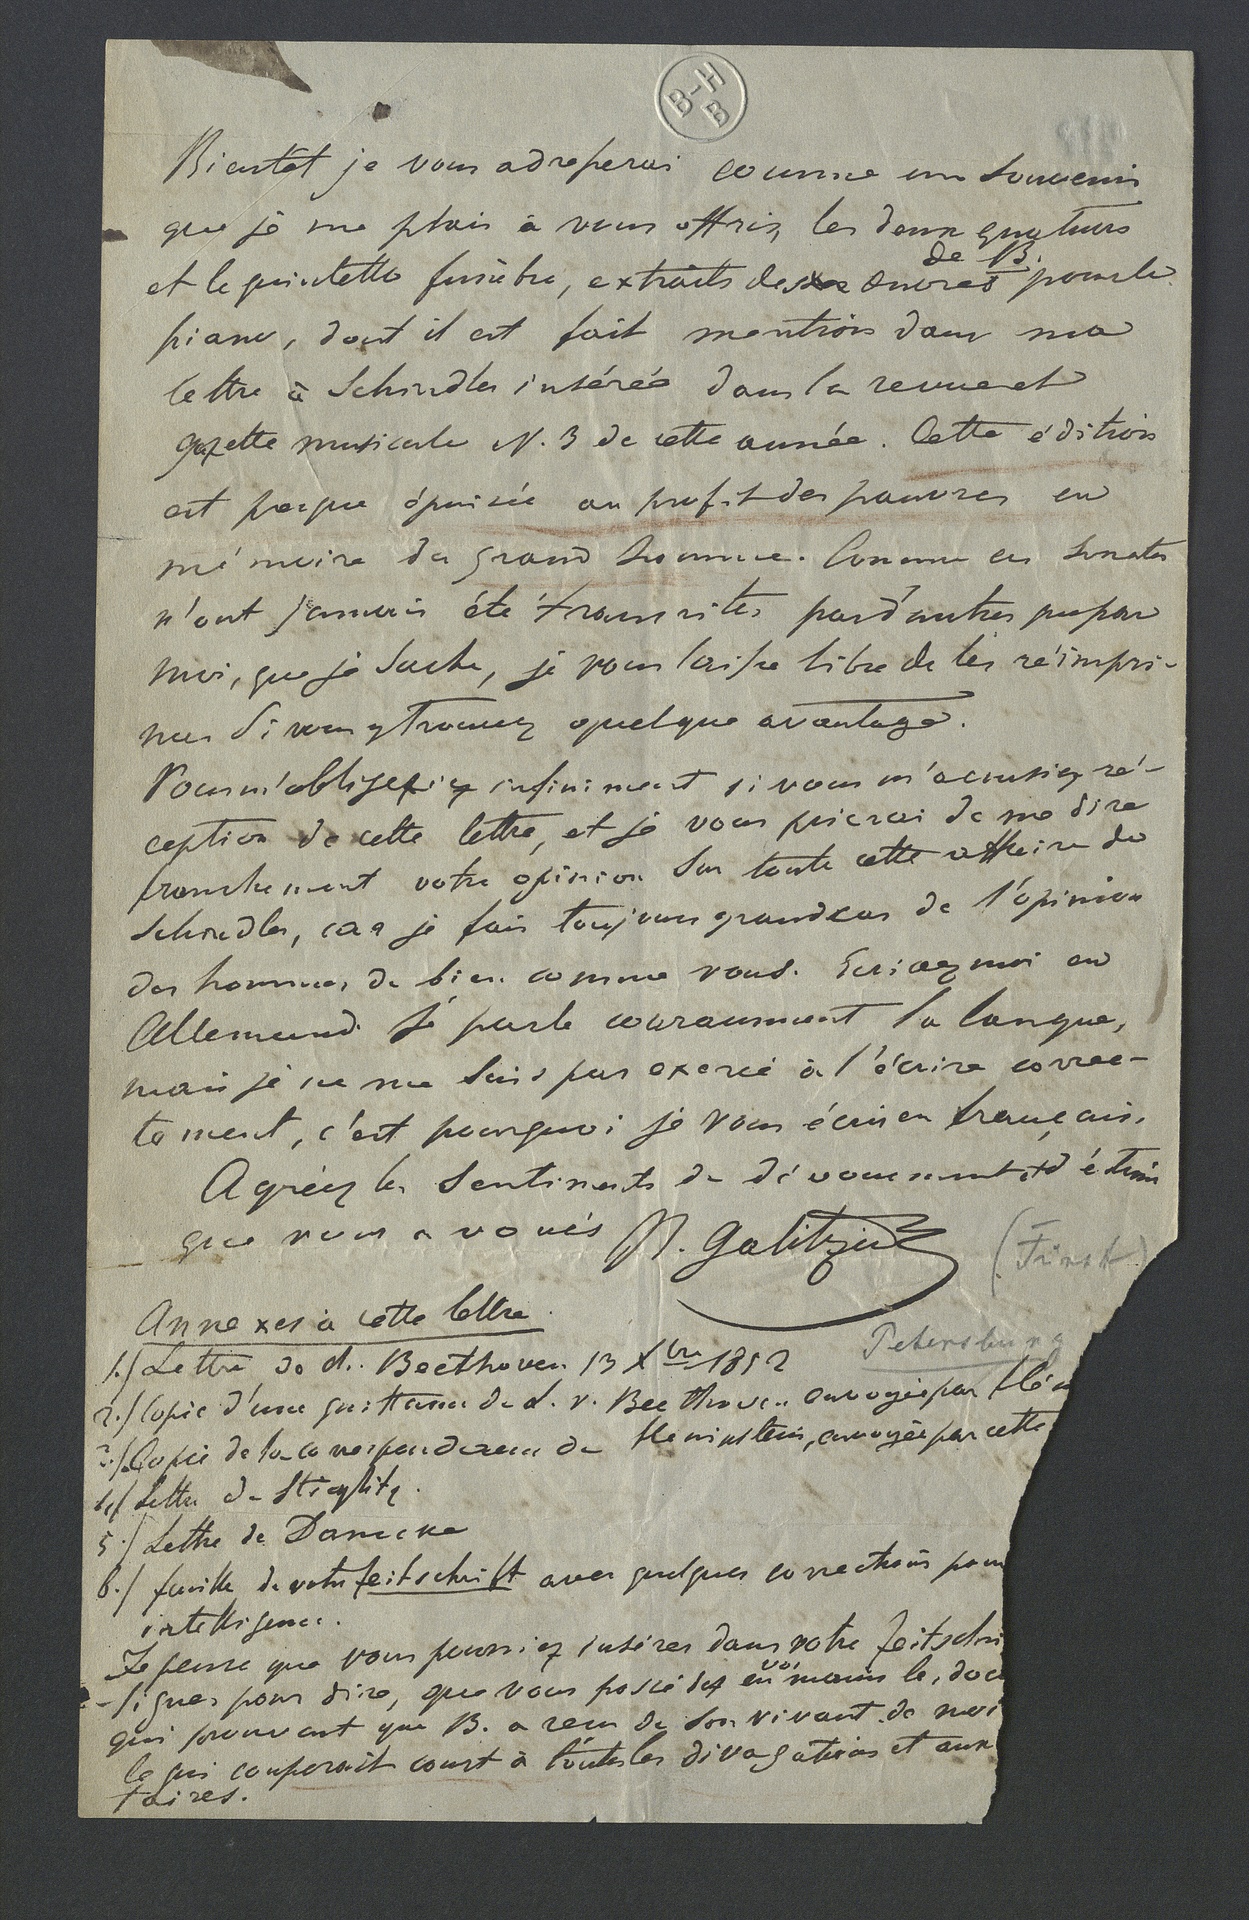 B-H
B
Bientôt je vous adresserai comme un souvenir
que je me plais à vous offrir, les deux quatuors
de B.
et le quintetto funèbre, extraits des œuvres pour le
piano, dont il est fait mention dans ma
lettre à Schindler insérée dans la revue et
gazette musicale N. 3 de cette année. Cette édition
est presque épuisée au profit des pauvres en
mémoire du grand homme. Comme ces sonates
n'ont jamais été transcrites par d'autres que par
moi, que je sache, je vous laisse libre de les réimpri-
mer si vous y trouvez quelque avantage.
Vous m'obligeriez infiniment si vous m'accusiez ré-
ception de cette lettre, et je vous prierai de me dire
franchement votre opinion sur toute cette affaire de
Schindler, car je fais toujours grand cas de l'opinion
des hommes de bien comme vous. Ecrivez moi en
Allemand. Je parle couramment la langue,
mais je ne me suis pas exercé à l'écrire correc-
tement, c'est pourquoi je vous écris en français.
Agréez les sentiments de dévouement et d'estime
que vous a voués N. Galitzin (Fürst)
Petersburg
Annexes à cette lettre.
1.) Lettre de Beethoven 13 Xbre 1852
2.) Copie d'une quittance de L. v. Beethoven envoyée par
3.) Copie de la correspondance de Henikstein, envoyée par cette
4.) Lettre de Stieglitz.
5.) Lettre de
6.) feuille de votre Zeitschrift avec quelques corrections pour
intelligence.
Je pense que vous pourriez insérer dans votre Zeitschri
lignes pour dire, que vous possédez en mains les doc
qui prouvent que B. a reçu de son vivant de moi
ce qui couperait court à toutes les divagations et aux
taires.